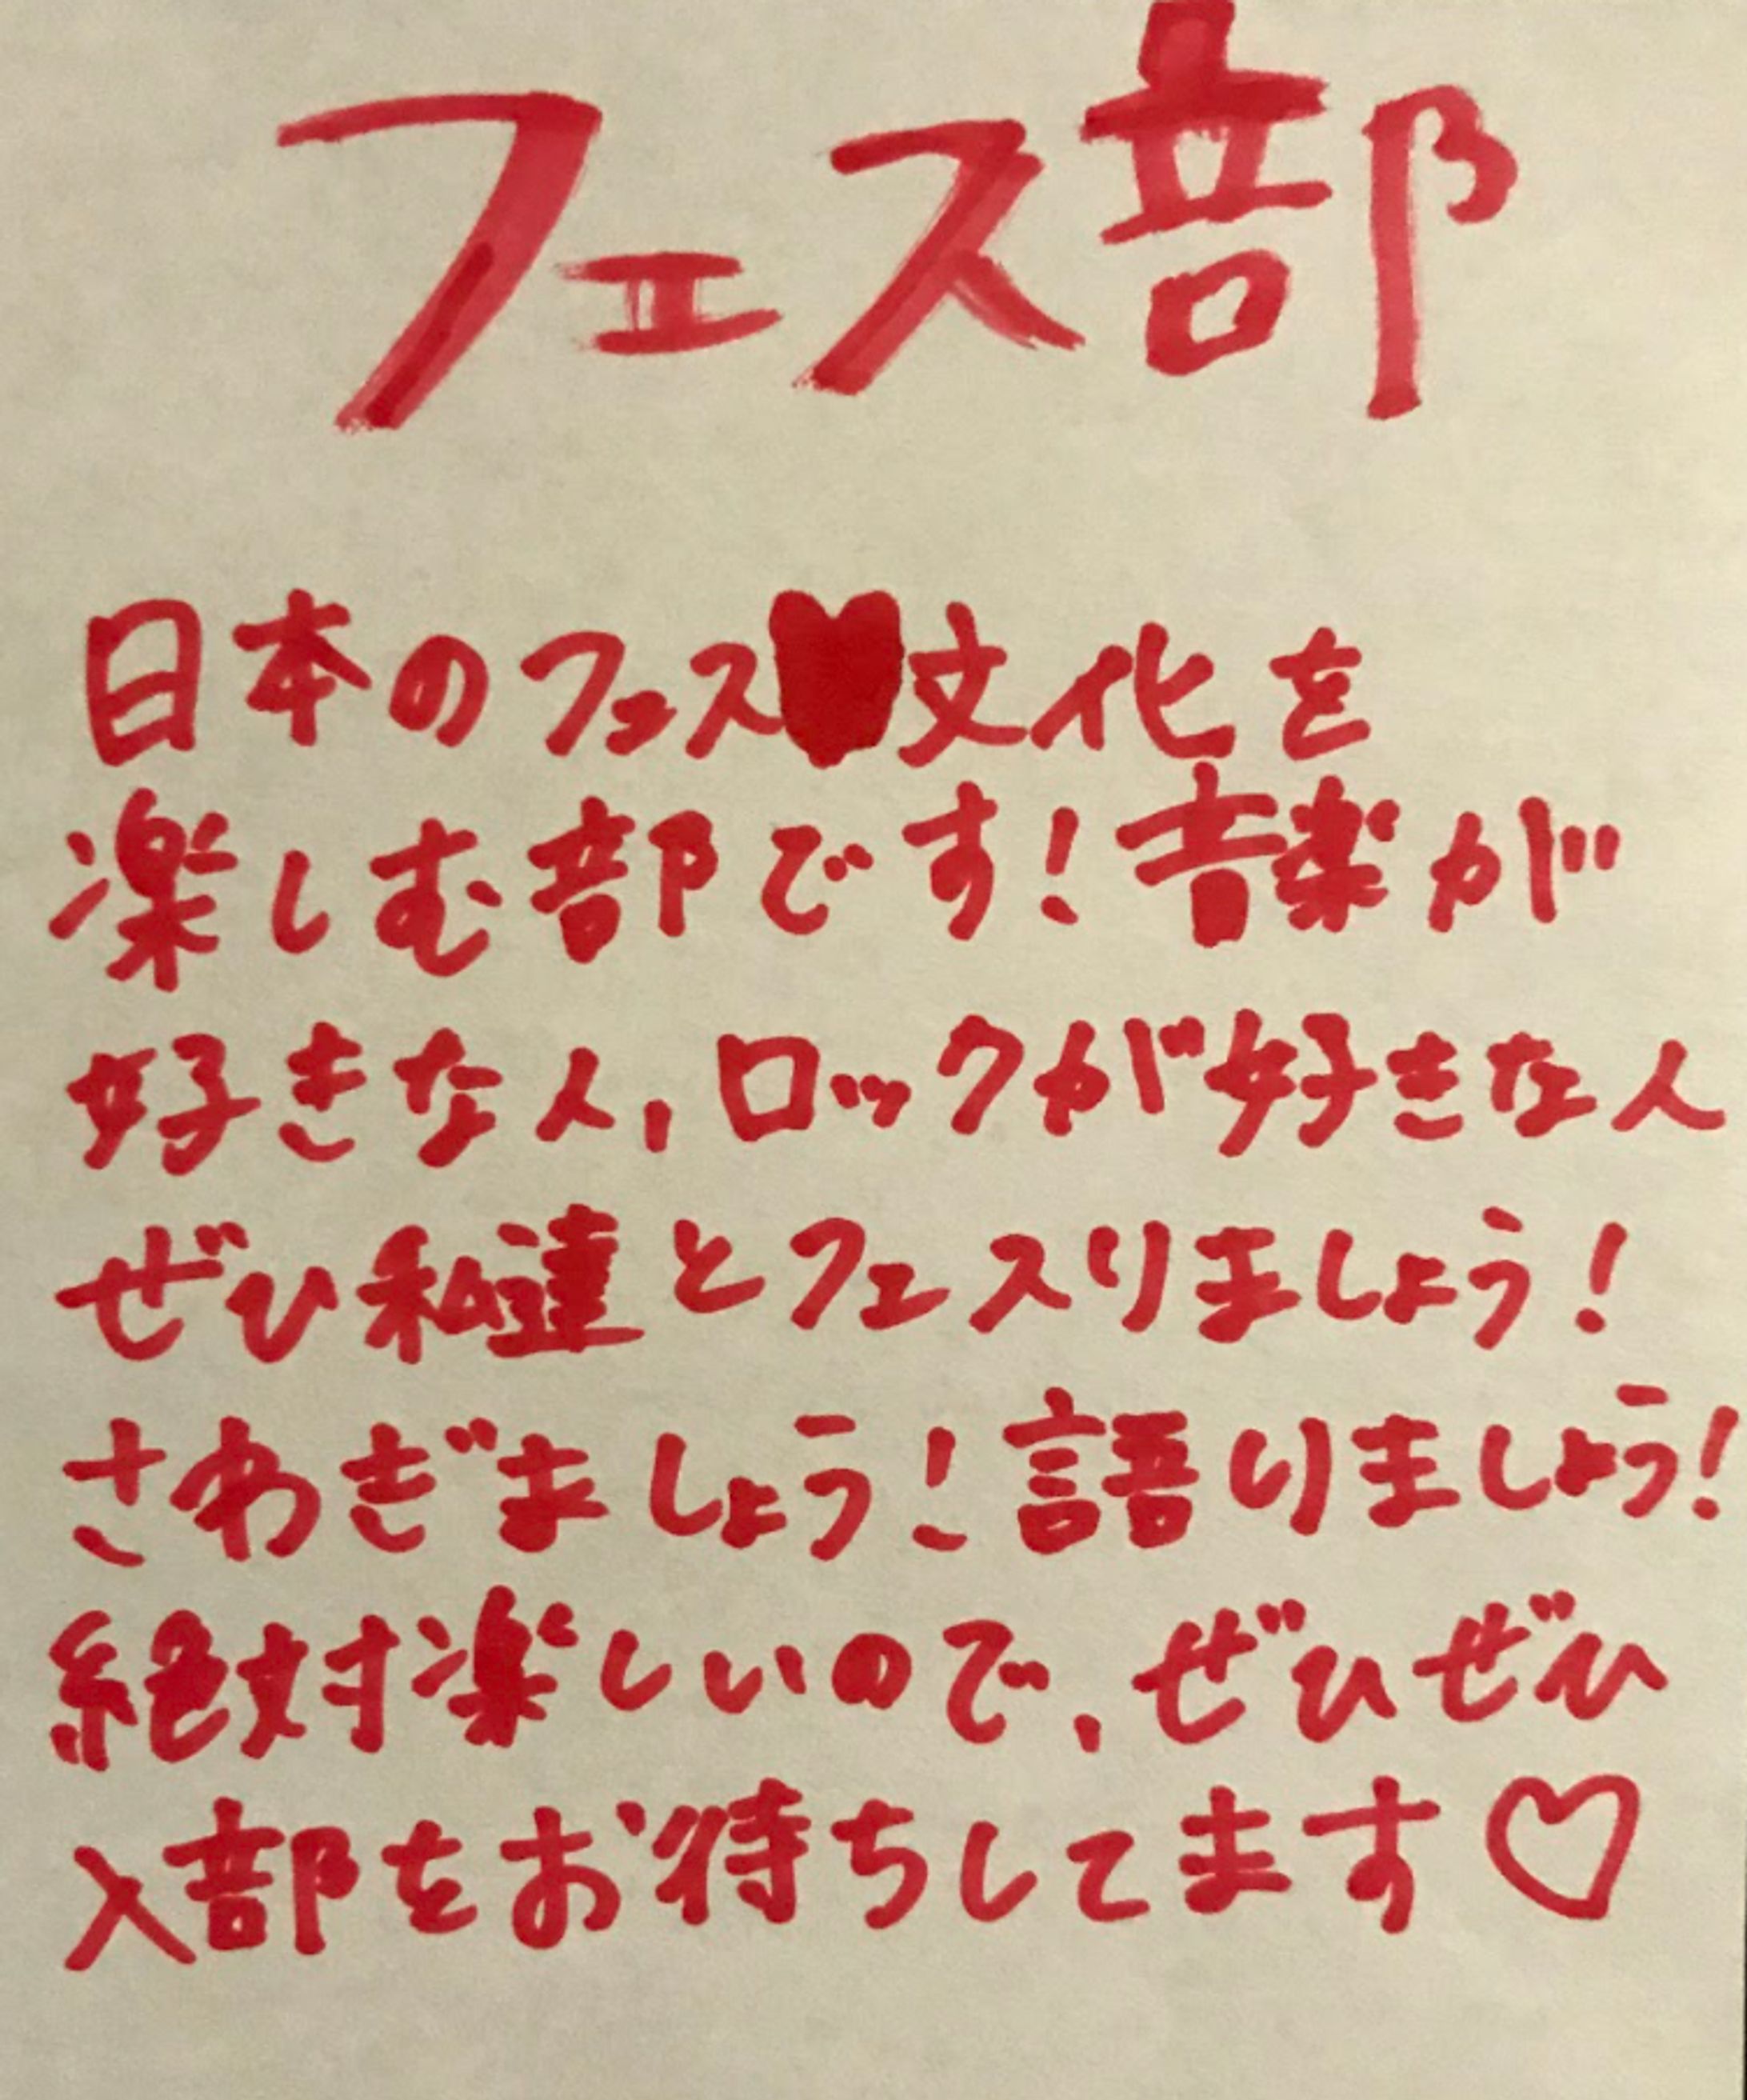 フェス部
日本のフェス♥文化を
楽しむ部です！音楽が
好きな人、ロックが好きな人
ぜひ私達とフェスりましょう！
さわぎましょう！語りましょう！
絶対楽しいので、ぜひぜひ
入部をお待ちしてます♡